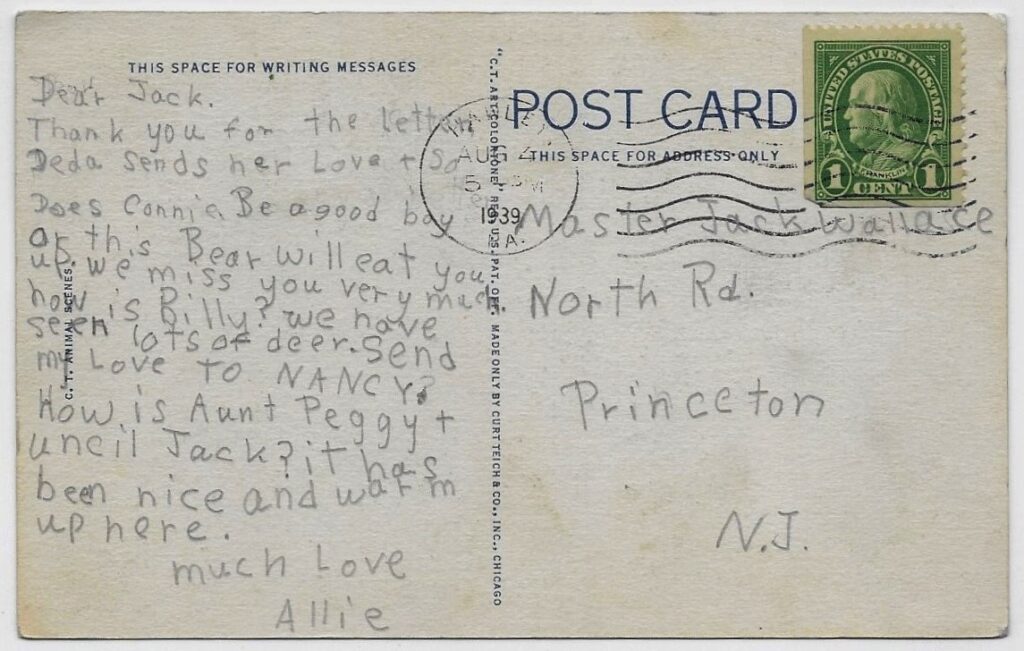 THIS SPACE FOR WRITING MESSAGES
Dear Jack.
Thank you for the letter
Deda sends her Love + So
Does Connie. Be a good boy
or this Bear will eat you
up. we miss you very much.
how is Billy? we have
seen lots of deer. Send
my Love TO NANCY?
How is Aunt Peggy +
uncil Jack? it has
been nice and warm
up here.
much Love
Allie
C. T. ANIMAL SCENES
"C.T. ART-COLORTONE" REG. U.S. PAT. OFF. MADE ONLY BY CURT TEICH & CO., INC., CHICAGO
POST CARD
THIS SPACE FOR ADDRESS ONLY
AUG 4
5 PM
1939
PA.
UNITED STATES POSTAGE
FRANKLIN
1 CENT 1
Master Jack Wallace
North Rd.
Princeton
N.J.